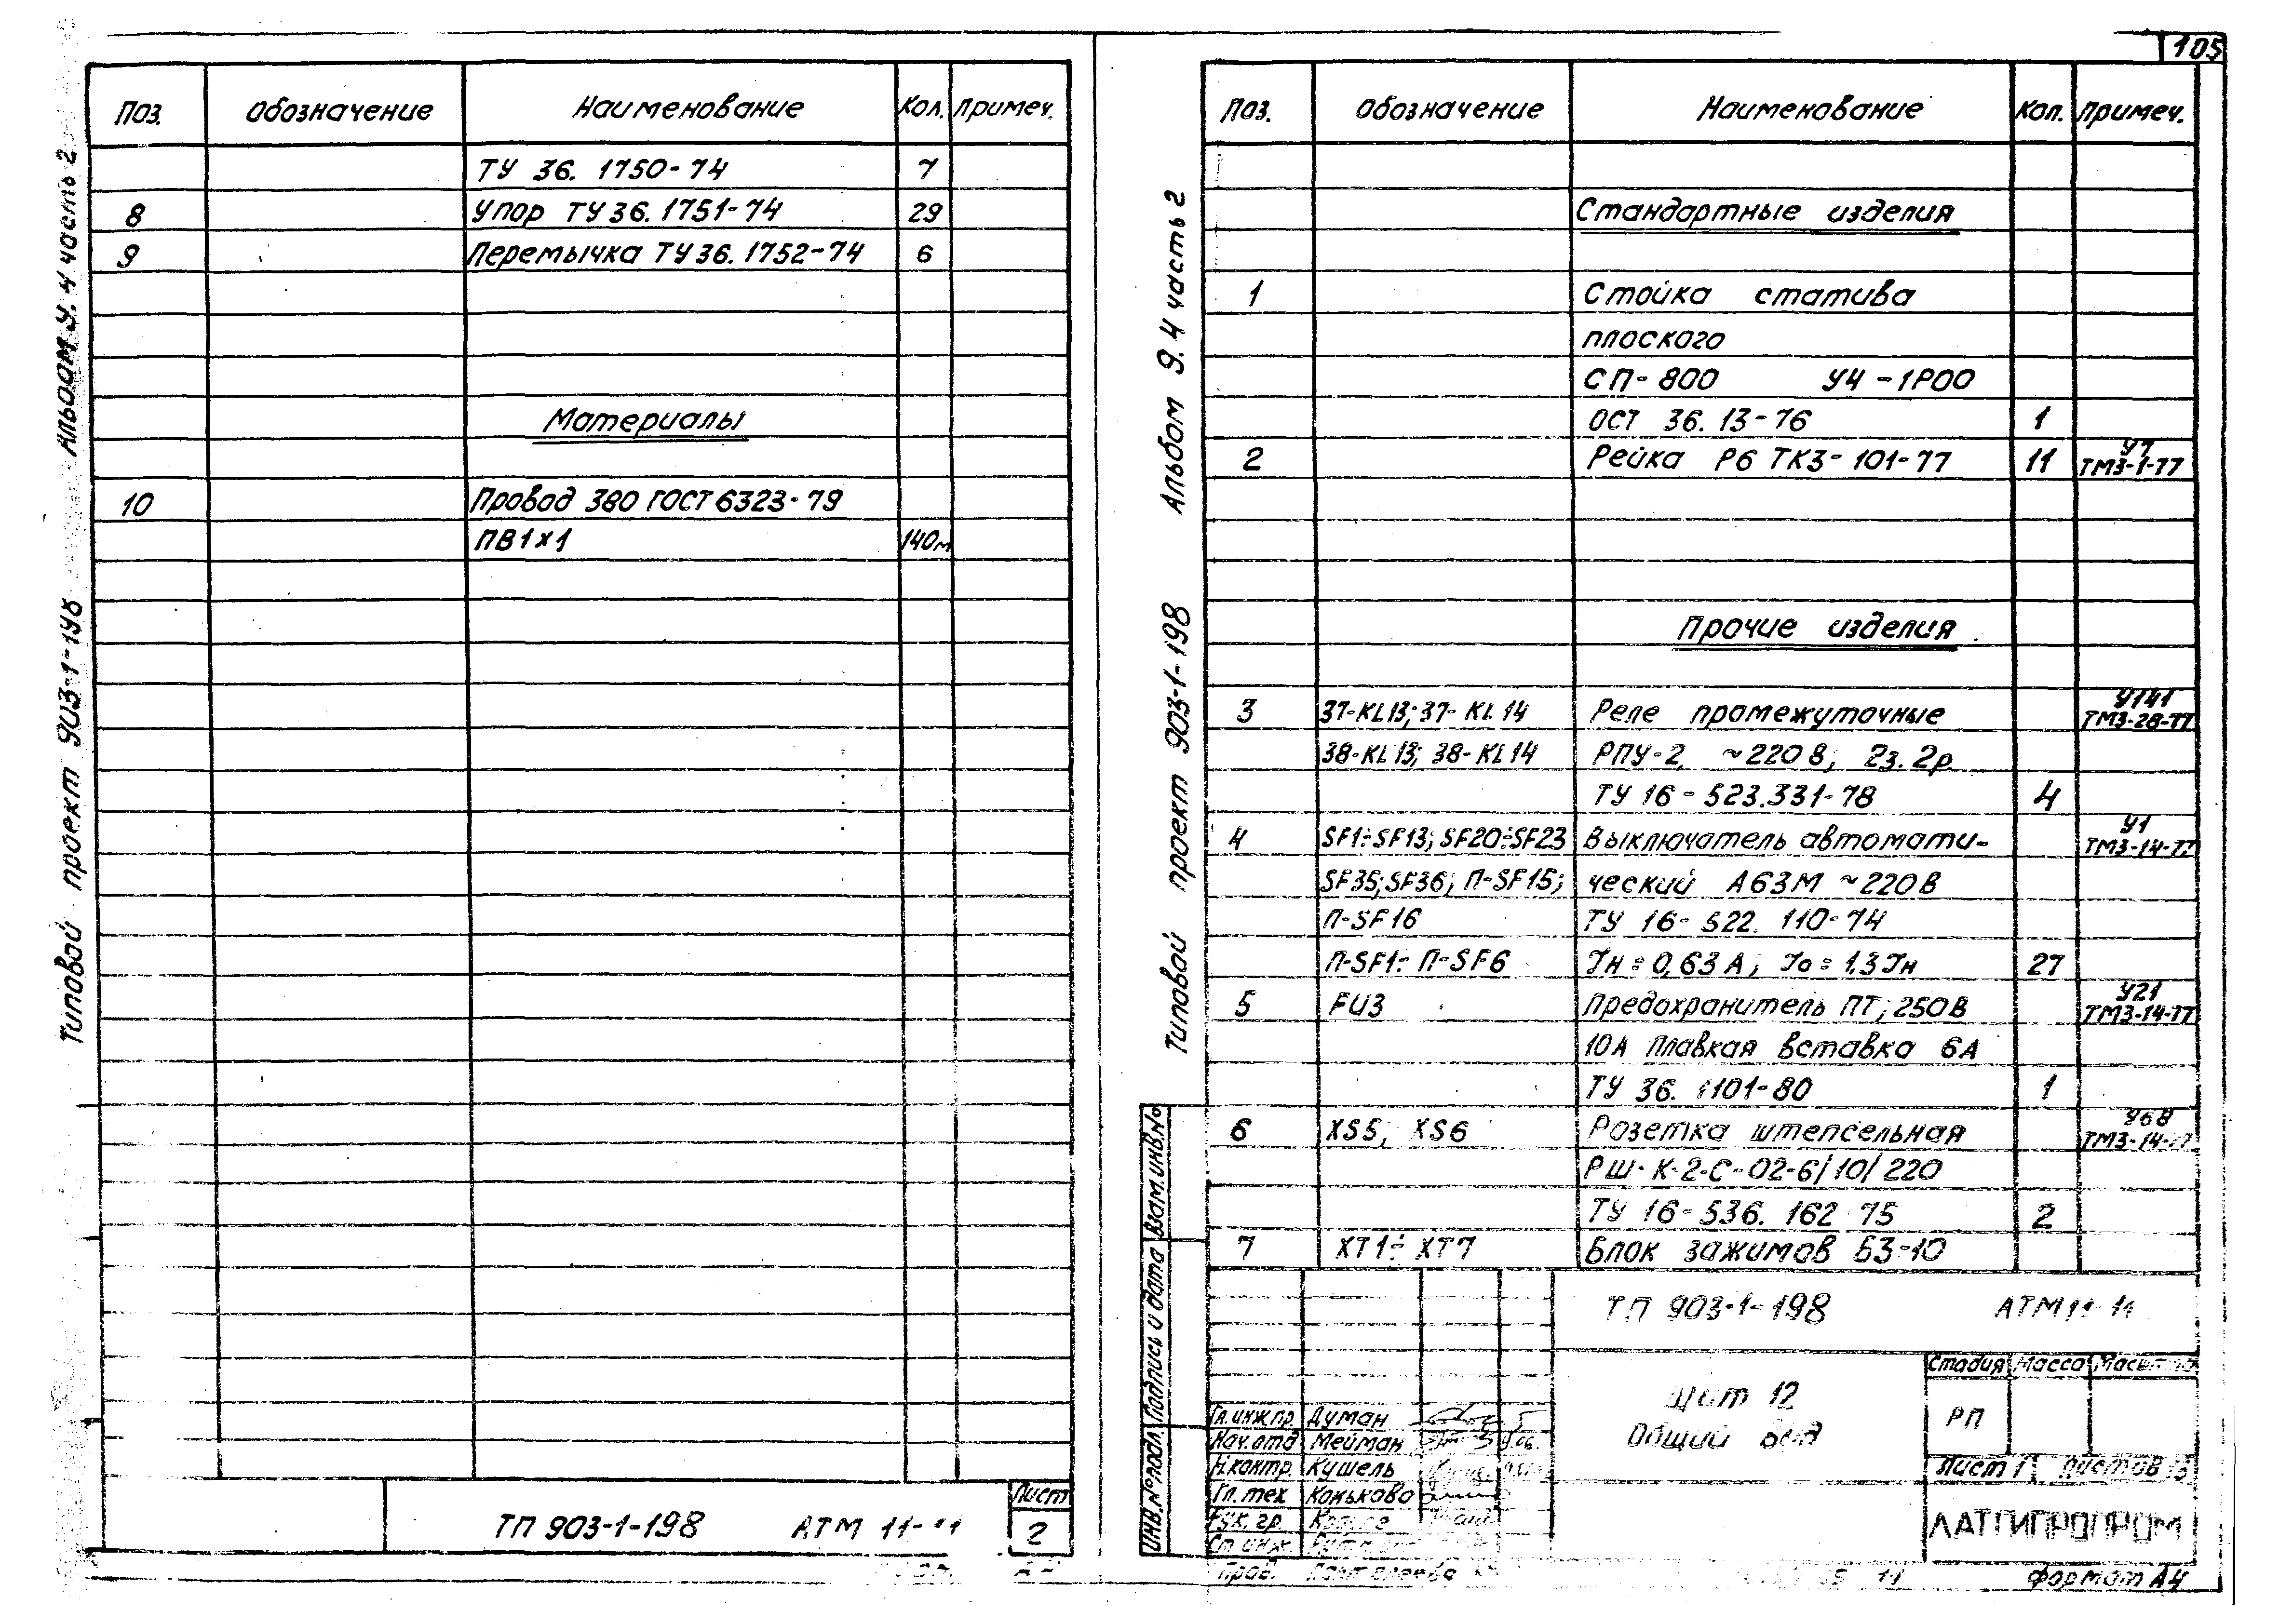 105
Поз. Обозначение Наименование Кол. Примеч.
ТУ 36. 1750-74 7
8 Упор ТУ 36. 1751-74 29
9 Перемычка ТУ 36. 1752-74 6
Материалы
10 Провод 380 ГОСТ 6323-79
ПВ1х1 140м
Альбом 9. 4 часть 2
Типовой проект 903-1-198
ТП 903-1-198 АТМ 11-11
Лист
2
Поз. Обозначение Наименование Кол. Примеч.
Стандартные изделия
1 Стойка статива
плоского
СП-800 У4-1Р00
ОСТ 36. 13-76 1
2 Рейка Р6 ТК3-101-77 11 У7 ТМ3-1-77
Прочие изделия
3 37-KL13; 37-KL14 Реле промежуточные У141 ТМ3-28-77
38-KL13; 38-KL14 РПУ-2, ~220В; 2з. 2р.
ТУ 16-523.331-78 4
4 SF1÷SF13; SF20÷SF23 Выключатель автомати- У1 ТМ3-14-77
SF35; SF36; П-SF15; ческий А63М ~220В
П-SF16 ТУ 16-522. 110-74
П-SF1÷П-SF6 Iн=0,63А; Iо=1,3Iн 27
5 FU3 Предохранитель ПТ, 250В У21 ТМ3-14-77
10А плавкая вставка 6А
ТУ 36. 1101-80 1
6 XS5, XS6 Розетка штепсельная У68 ТМ3-14-77
РШ-К-2-С-02-6/10/220
ТУ 16-536. 162-75 2
7 XT1÷XT7 Блок зажимов БЗ-10
Альбом 9. 4 часть 2
Типовой проект 903-1-198
Взам.инв.№
Подпись и дата
Инв.№подл.
ТП 903-1-198 АТМ 11-11
Щит 12
Общий вид
Стадия Масса Масштаб
РП
Лист 1 Листов 13
ЛАТГИПРОПРОМ
Гл.инж.пр. Думан
Нач.отд Мейман
Н.контр. Кушель
Гл.тех Конькова
Рук.гр.
Ст.инж.
Пров.
Формат А4